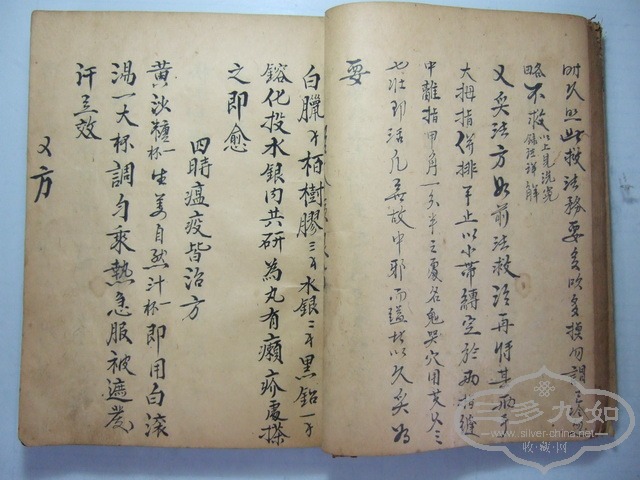 時久照此救法務要多吹多摸勿謂
略不救以上見洗冤
錄註詳解
又灸法方如前法救活再將其兩手
大拇指併排手止以小帶縛定於兩指縫
中離指甲角一分半之處名鬼哭穴用艾火三
壯即活凡無故中邪而 以火灸為
要
白臘 柏樹膠三 水銀二 黑鉛一
鎔化投水銀內共研為丸有癩疥處搽
之即愈
四時瘟疫皆治方
黃沙糖一杯生姜自然汁一杯即用白滾
湯一大杯調勻乘熱急服被遮發
汗立效
又方
三多九如
www.silver-china.net
收·藏·网